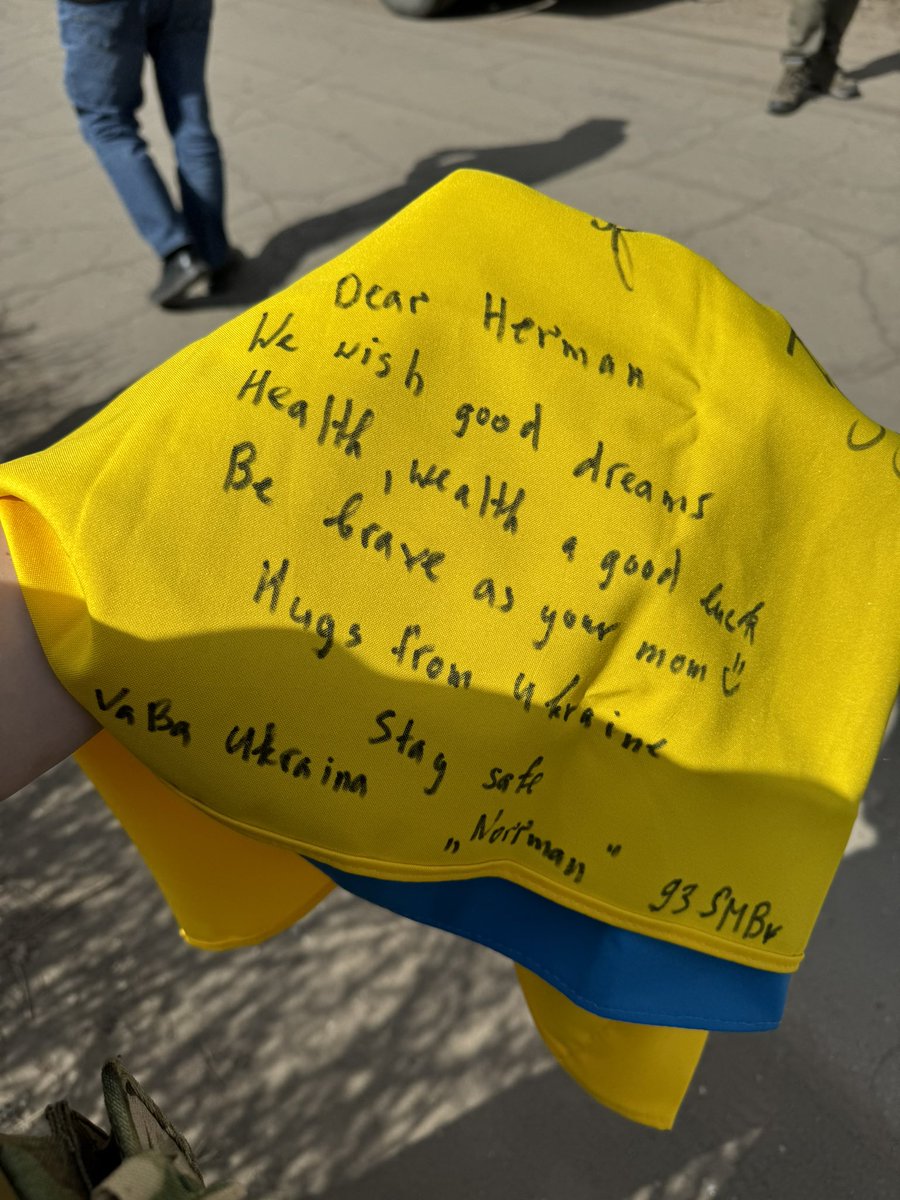 Dear Herman
We wish good dreams
Health, wealth a good luck
Be brave as your mom
Hugs from Ukraine
Stay safe
VaBa Ukraina
„Norrman"
93 SMBr